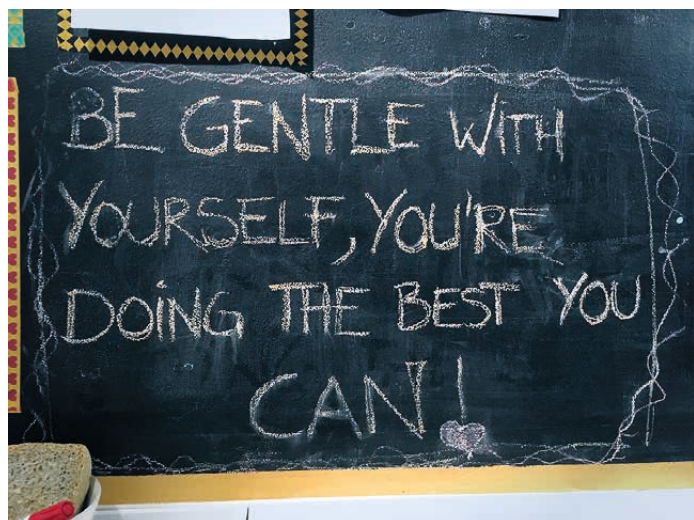 BE GENTLE WITH
YOURSELF, YOU'RE
DOING THE BEST YOU
CAN!